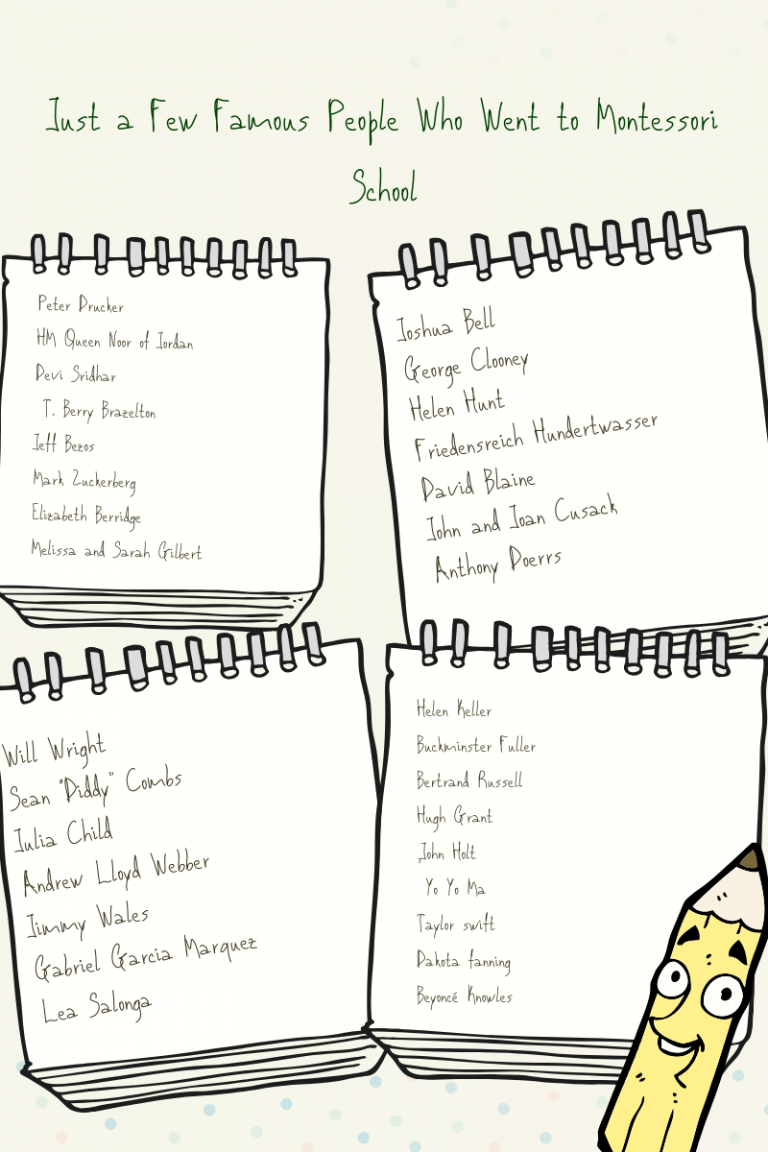 Just a Few Famous People Who Went to Montessori
School
Peter Drucker
HM Queen Noor of Jordan
Devi Sridhar
T. Berry Brazelton
Jeff Bezos
Mark Zuckerberg
Elizabeth Berridge
Melissa and Sarah Gilbert
Joshua Bell
George Clooney
Helen Hunt
Friedensreich Hundertwasser
David Blaine
John and Joan Cusack
Anthony Doerrs
Will Wright
Sean "Diddy" Combs
Julia Child
Andrew Lloyd Webber
Jimmy Wales
Gabriel Garcia Marquez
Lea Salonga
Helen Keller
Buckminster Fuller
Bertrand Russell
Hugh Grant
John Holt
Yo Yo Ma
Taylor swift
Dakota fanning
Beyoncé Knowles